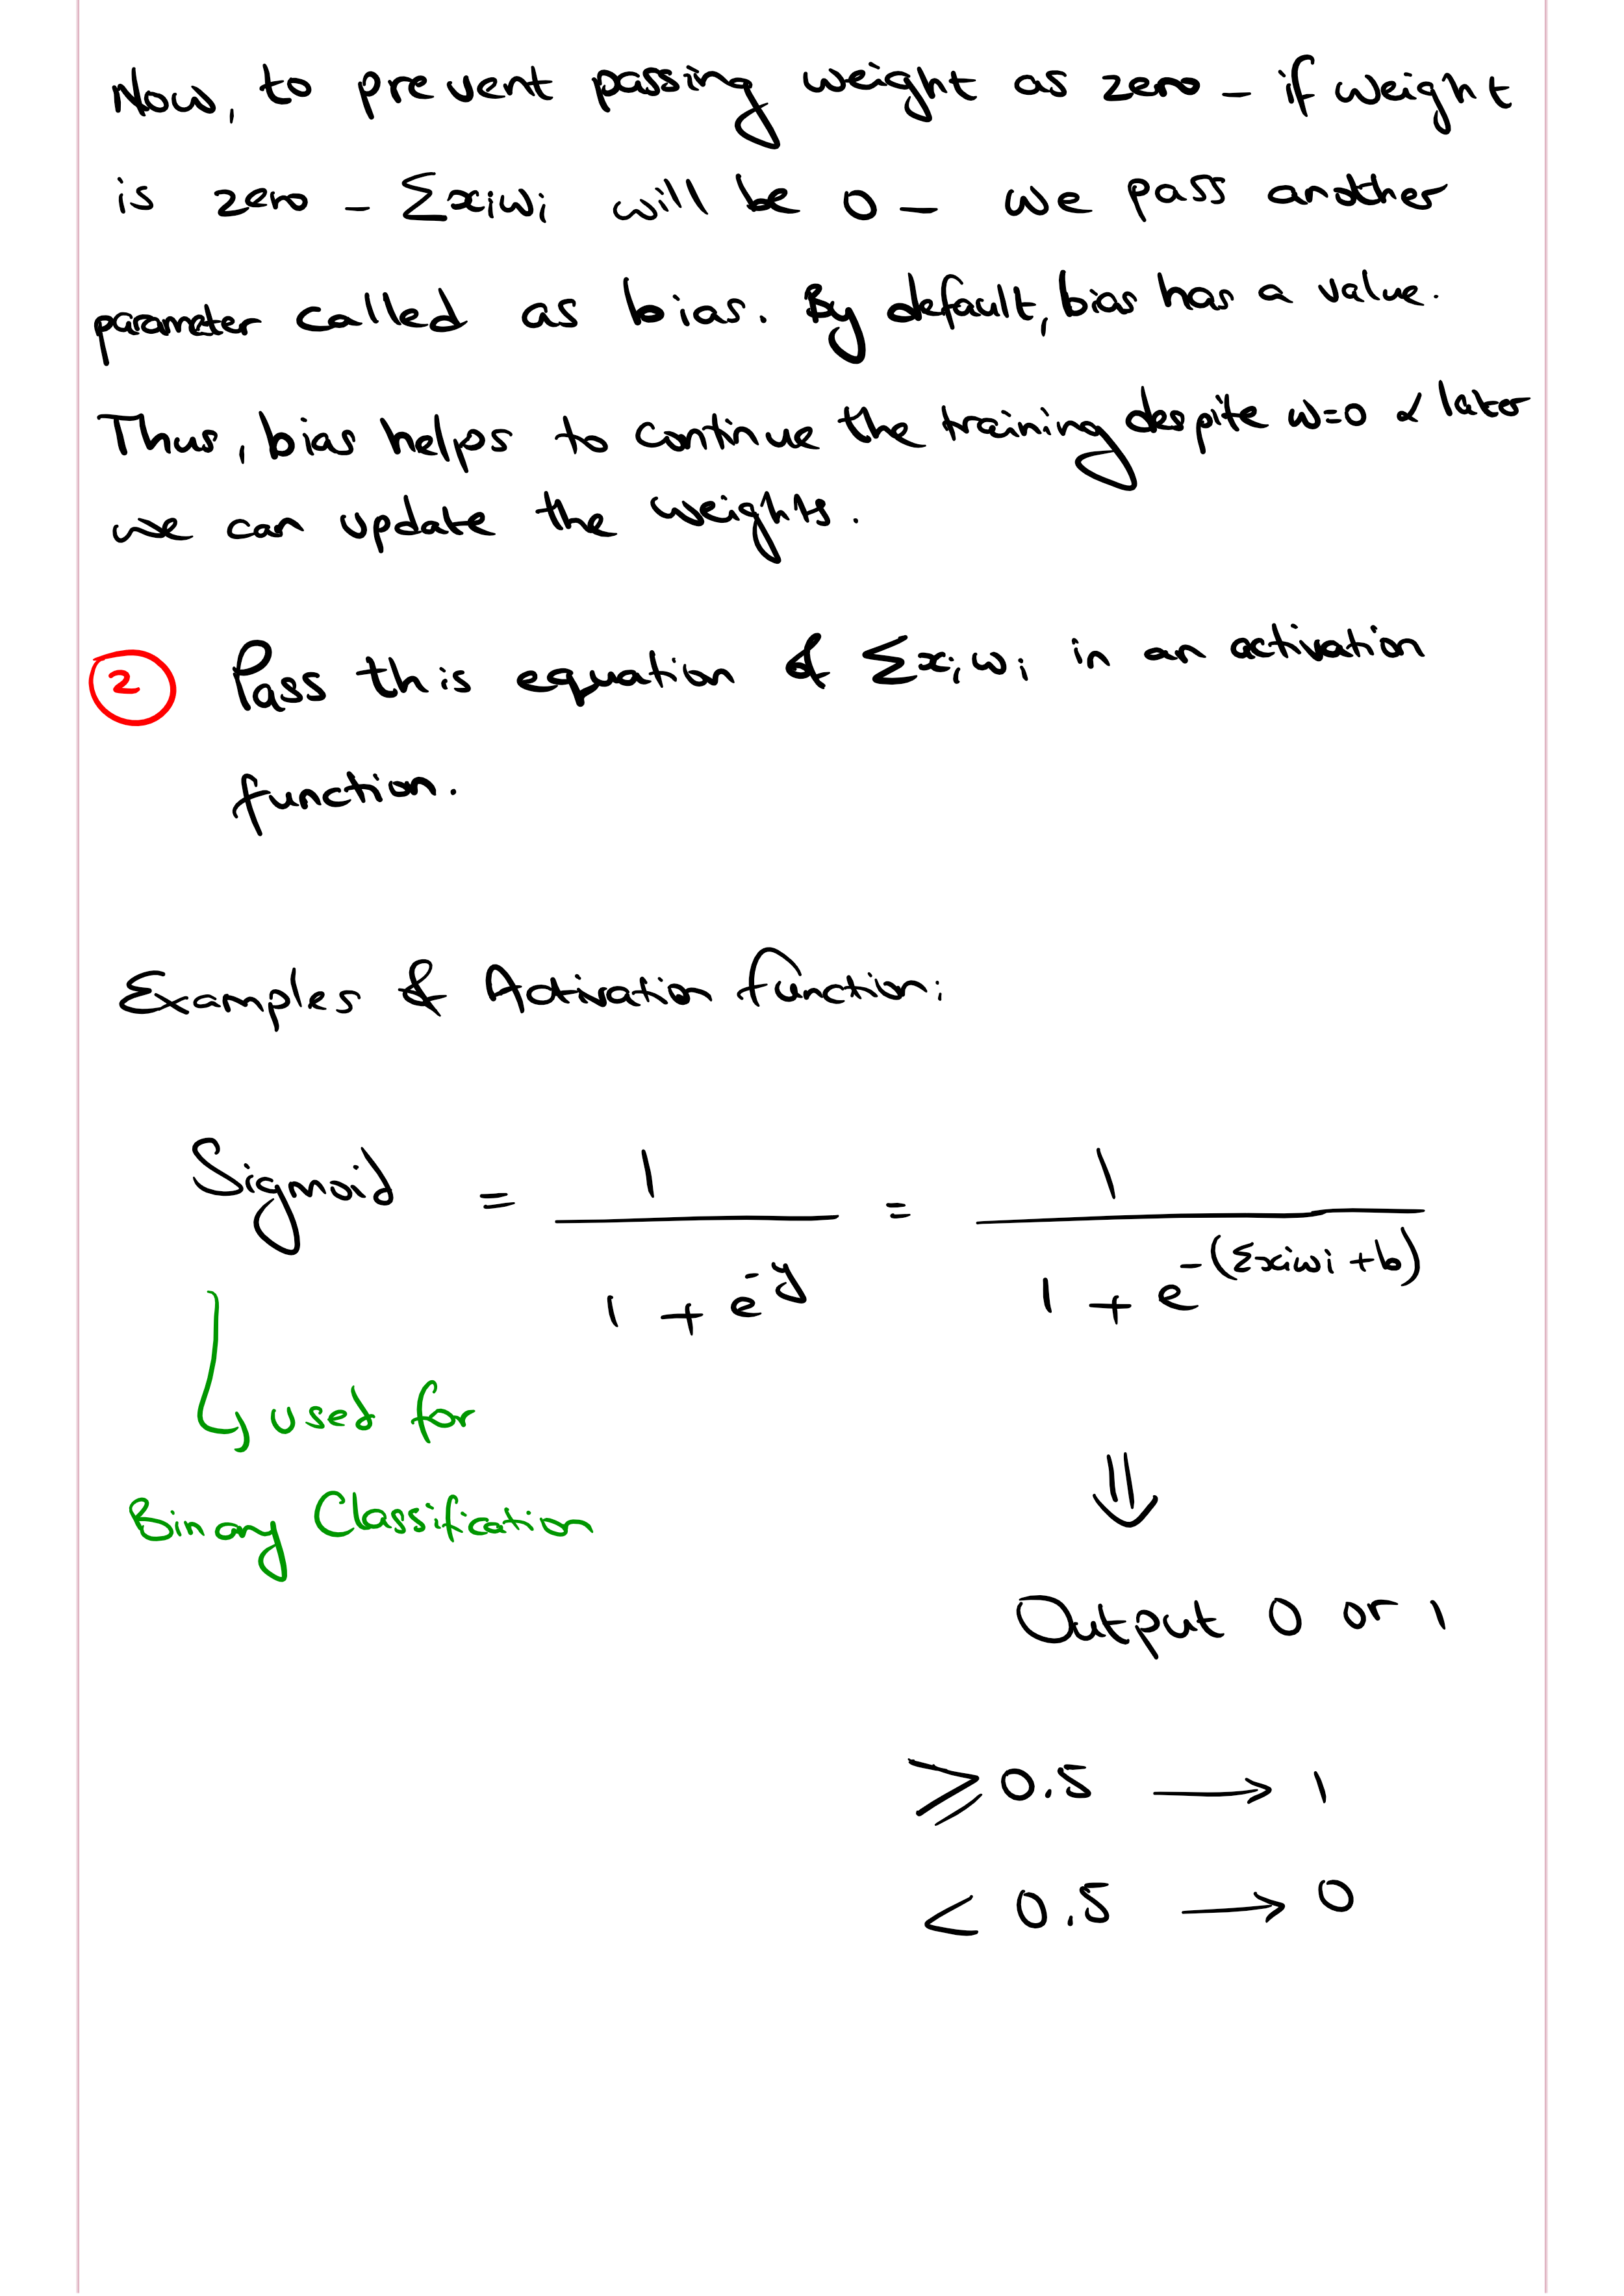 Now, to prevent passing weight as zero - if weight
is zero - Σxiwi will be 0 - we pass another
parameter called as bias. By default, bias has a value.
Thus, bias helps to continue the training despite w=0 & later
we can update the weights.
② Pass this equation of Σxiwi in an activation
function.
Examples of Activation function:
Sigmoid = 1 / (1 + e^-y) = 1 / (1 + e^-(Σxiwi + b))
↳ used for
Binary Classification
⇓
Output 0 or 1
≥ 0.5 → 1
< 0.5 → 0